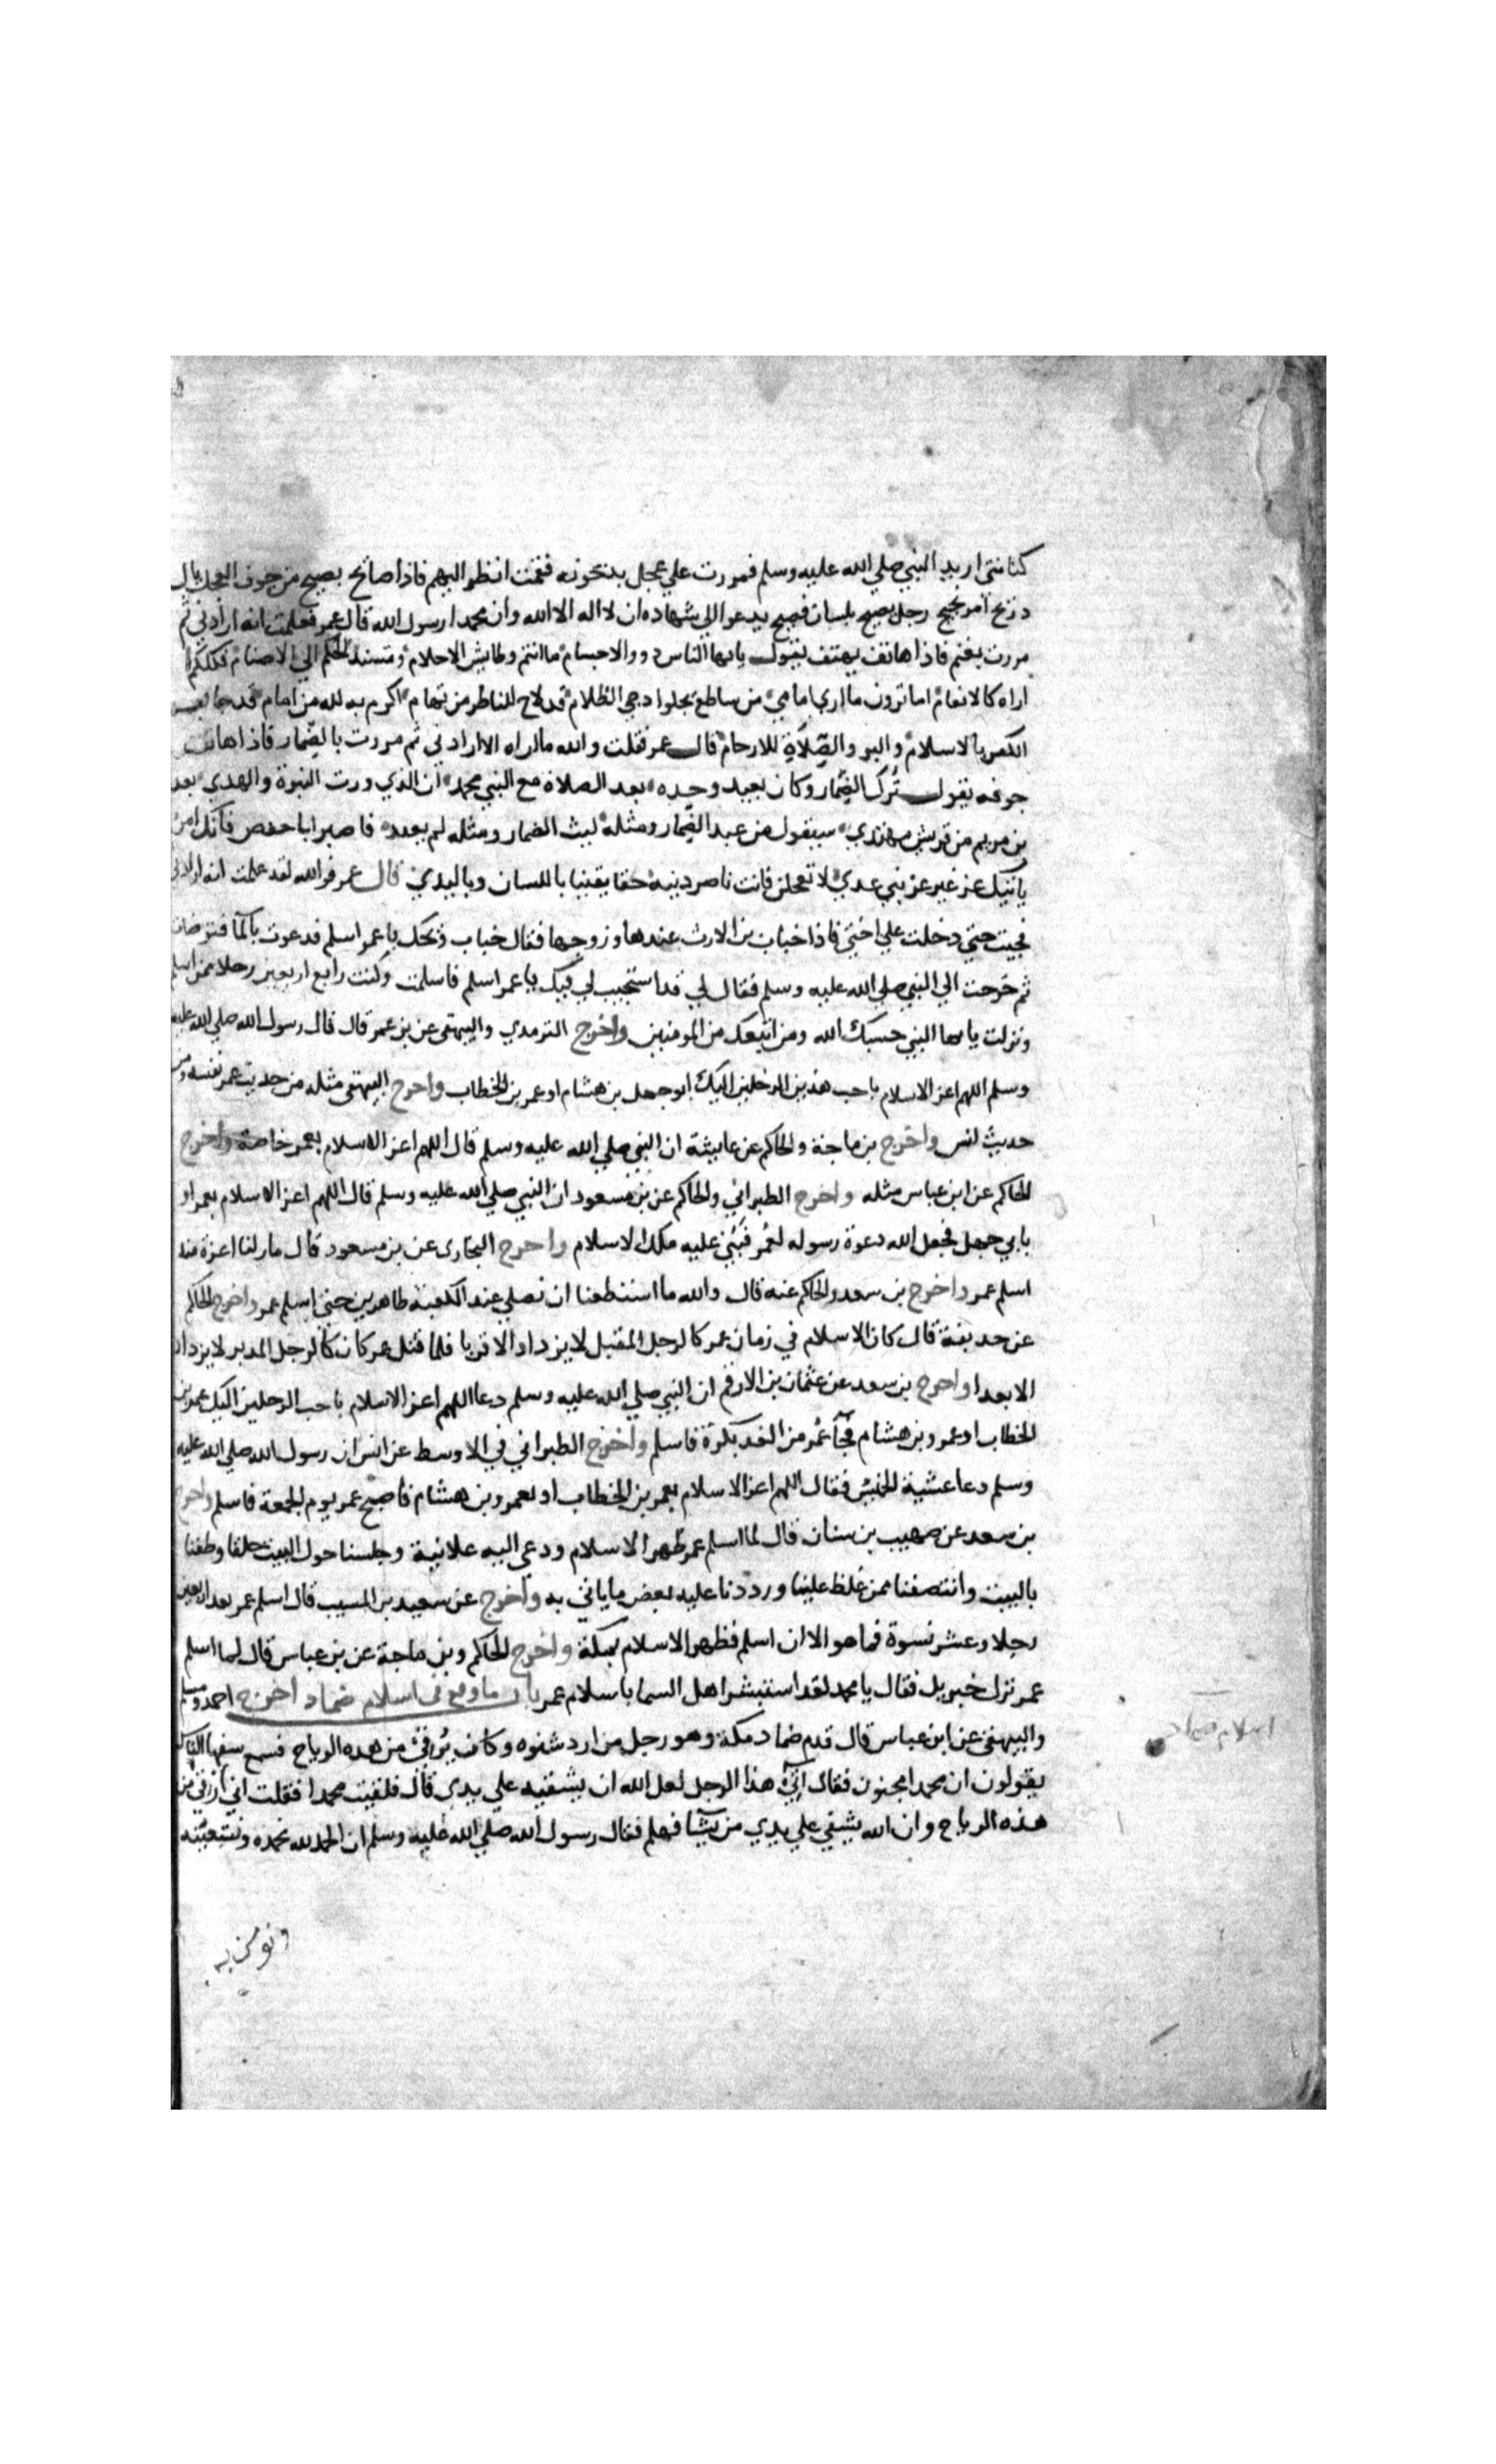 كنانتي اريد النبي صلي الله عليه وسلم فمررت علي عجل يذبحونه فقمت انظر اليهم فاذا صائح يصيح من جوف العجل يال
ذريح امر نجيح رجل يصيح بلسان فصيح يدعو الي شهاده ان لا اله الا الله وان محمدا رسول الله قال عمر فعلمت انه ارادني ثم
مررت بغنم فاذا هاتف يهتف يقول يا ايها الناس ذووا الاجسام ما انتم وطايش الاحلام ومسند الحكم الي الاصنام فكلكم
اراه كالانعام اما ترون ما اري امامي من ساطع يجلوا دجي الظلام قد لاح للناظر من تهام اكرم به لله من امام قد جا بعد
الكفر بالاسلام والبر والصلاة للارحام قال عمر فقلت والله ما اراه الا ارادني ثم مررت بالضمار فاذا هاتف
جوفه يقول ترك الضمار وكان يعبد وحده بعد الصلاة مع النبي محمد ان الذي ورث النبوة والهدي بعد
بن مريم من قريش مهتدي سيقول من عبد الضمار ومثله ليت الضمار ومثله لم يعبد فاصبر ابا حفص فانك امرؤ
ياتيك عز غير عز بني عدي لا تعجلن فانت ناصر دينه حقا يقينا باللسان وباليدي قال عمر فوالله لقد علمت انه ارادني
فجيت حتي دخلت علي اختي فاذا خباب بن الارث عندها وزوجها فقال خباب ويحك يا عمر اسلم فدعوت بالما فتوضات
ثم خرجت الي النبي صلي الله عليه وسلم فقال لي قد استجيب لي فيك يا عمر اسلم فاسلمت وكنت رابع اربعين رجلا ممن اسلم
ونزلت يا ايها النبي حسبك الله ومن اتبعك من المومنين واخرج الترمدي والبيهقي عن بن عمر قال قال رسول الله صلي الله عليه
وسلم اللهم اعز الاسلام باحب هذين الرجلين اليك ابو جهل بن هشام او عمر بن الخطاب واخرج البيهقي مثله من حديث عمر نفسه ومن
حديث انس واخرج بن ماجة والحاكم عن عايشة ان النبي صلي الله عليه وسلم قال اللهم اعز الاسلام بعمر خاصة واخرج
الحاكم عن ابن عباس مثله واخرج الطبراني والحاكم عن بن مسعود ان النبي صلي الله عليه وسلم قال اللهم اعز الاسلام بعمر او
بابي جهل فجعل الله دعوة رسوله لعمر فبني عليه ملك الاسلام واخرج البخاري عن بن مسعود قال ما زلنا اعزة منذ
اسلم عمر واخرج بن سعد والحاكم عنه قال والله ما استطعنا ان نصلي عند الكعبة ظاهرين حتي اسلم عمر واخرج الحاكم
عن حديفة قال كان الاسلام في زمان عمر كالرجل المقبل لا يزداد الا قربا فلما قتل عمر كان كالرجل المدبر لا يزداد
الا بعدا واخرج بن سعد عن عثمان بن الارقم ان النبي صلي الله عليه وسلم دعا اللهم اعز الاسلام باحب الرجلين اليك عمر بن
الخطاب او عمرو بن هشام فجآ عمر من الغد بكرة فاسلم واخرج الطبراني في الاوسط عن انس ان رسول الله صلي الله عليه
وسلم دعا عشية الخميس فقال اللهم اعز الاسلام بعمر بن الخطاب او بعمرو بن هشام فاصبح عمر يوم الجمعة فاسلم واخرج
بن سعد عن صهيب بن سنان قال لما اسلم عمر ظهر الاسلام ودعي اليه علانية وجلسنا حول البيت حلقا وطفنا
بالبيت وانتصفنا ممن غلظ علينا ورددنا عليه بعض ما ياتي به واخرج عن سعيد بن المسيب قال اسلم عمر بعد اربعين
رجلا وعشر نسوة فما هو الا ان اسلم فظهر الاسلام بمكة واخرج الحاكم وبن ماجة عن بن عباس قال لما اسلم
عمر نزل جبريل فقال يا محمد لقد استبشر اهل السما باسلام عمر باب ما وقع في اسلام ضماد اخرج احمد ومسلم
والبيهقي عن ابن عباس قال قدم ضماد مكة وهو رجل من ازد شنوه وكان يرقي من هده الرياح فسمع سفها الناس
يقولون ان محمدا مجنون فقال آتي هذا الرجل لعل الله ان يشفيه علي يدي قال فلقيت محمدا فقلت اني ارقي من
هذه الرياح وان الله يشفي علي يدي من يشآ فهلم فقال رسول الله صلي الله عليه وسلم ان الحمد لله نحمده ونستعينه
اسلام ضماد
ونومن به